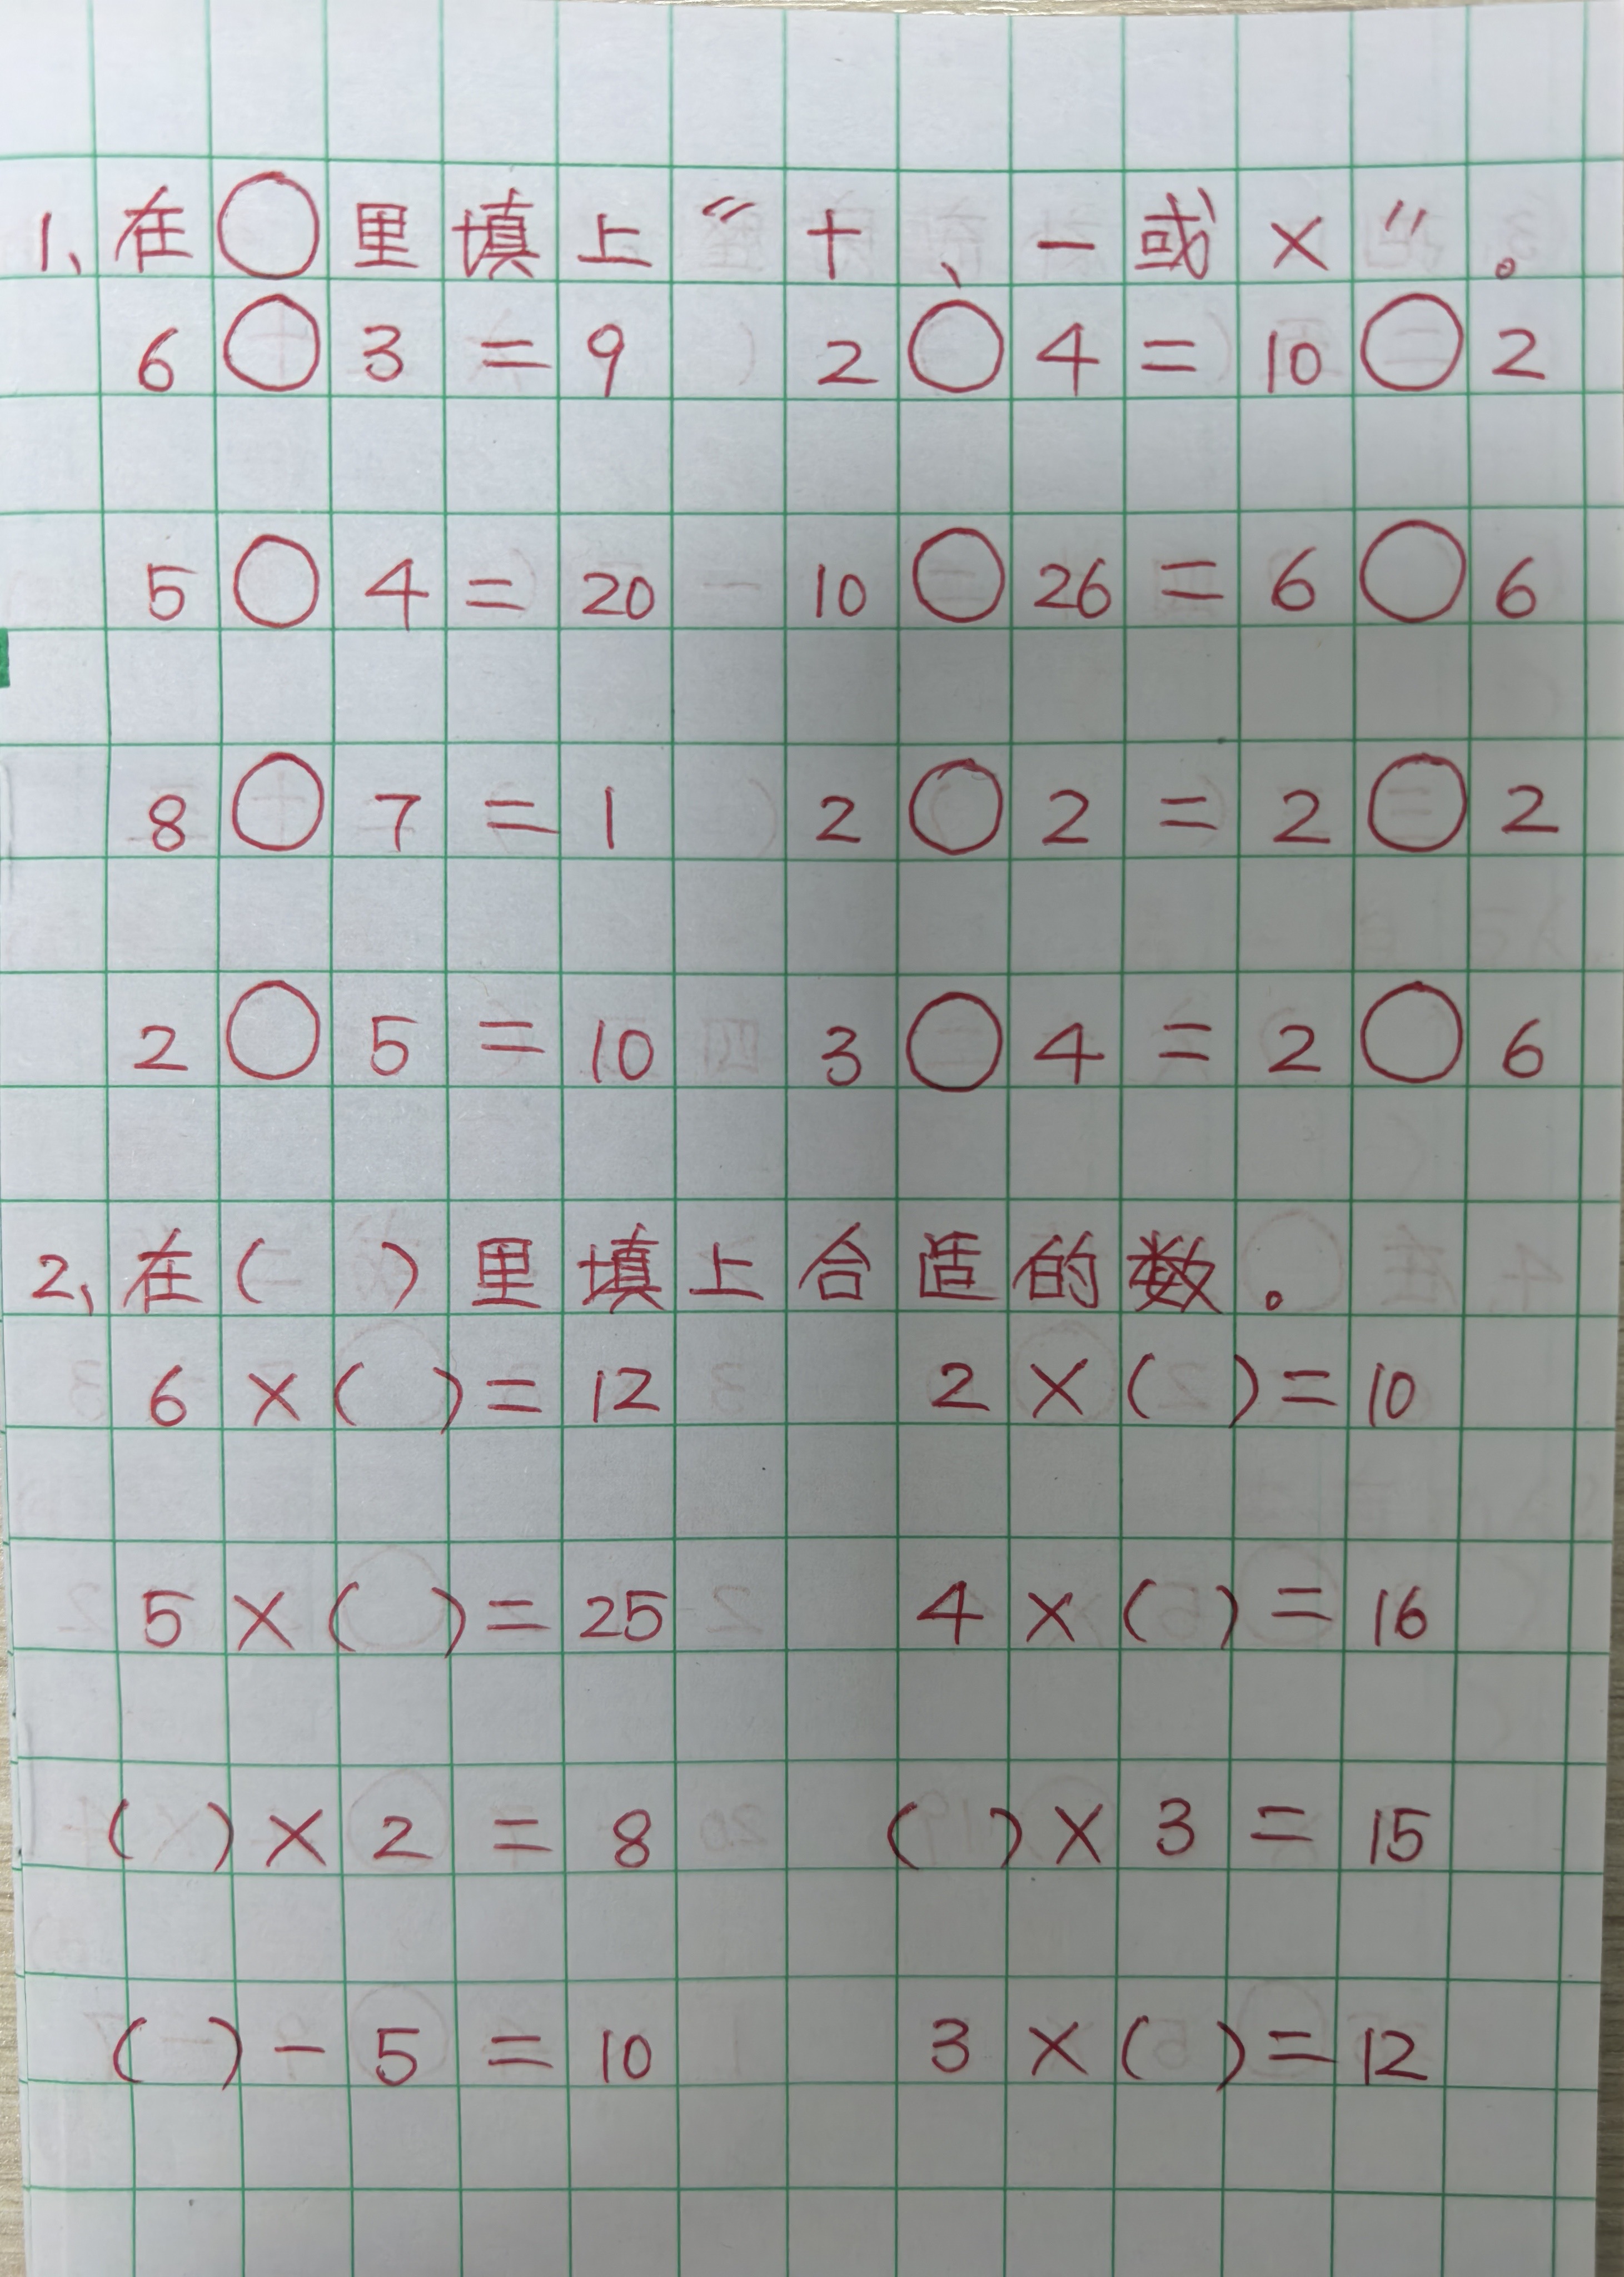 1、在○里填上“+、-或×”。
6○3=9 2○4=10○2
5○4=20 10○26=6○6
8○7=1 2○2=2○2
2○5=10 3○4=2○6
2、在( )里填上合适的数。
6×( )=12 2×( )=10
5×( )=25 4×( )=16
( )×2=8 ( )×3=15
( )-5=10 3×( )=12